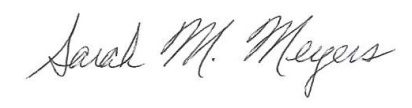 Sarah M. Meyers